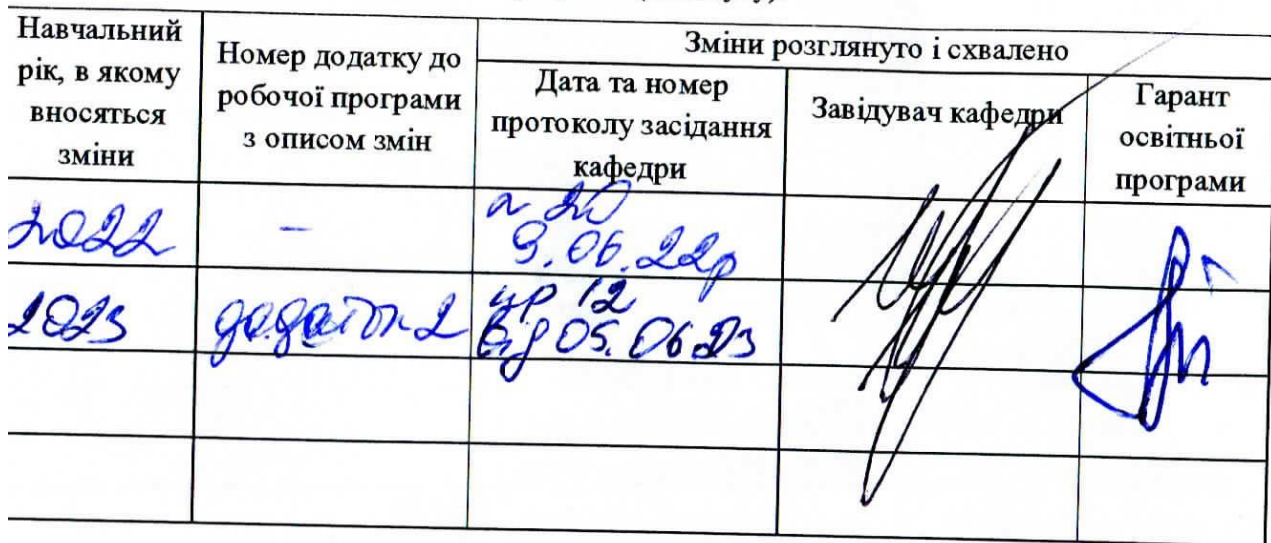 Навчальний рік, в якому вносяться зміни
Номер додатку до робочої програми з описом змін
Зміни розглянуто і схвалено
Дата та номер протоколу засідання кафедри
Завідувач кафедри
Гарант освітньої програми
2022
–
20
9.06.22р
2023
додаток 2
пр 12
від 05.06.23